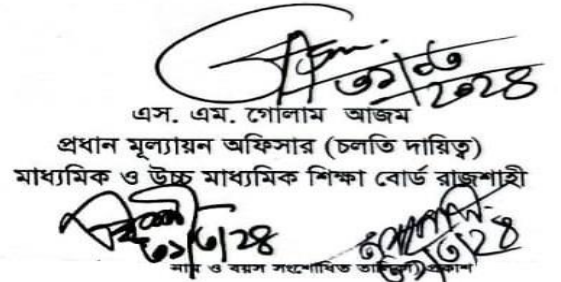 ৩১/৩/২০২৪
এস. এম. গোলাম আজম
প্রধান মূল্যায়ন অফিসার (চলতি দায়িত্ব)
মাধ্যমিক ও উচ্চ মাধ্যমিক শিক্ষা বোর্ড রাজশাহী
৩১/৩/২৪ ৩১/৩/২৪
নাম ও বয়স সংশোধিত প্রকাশ